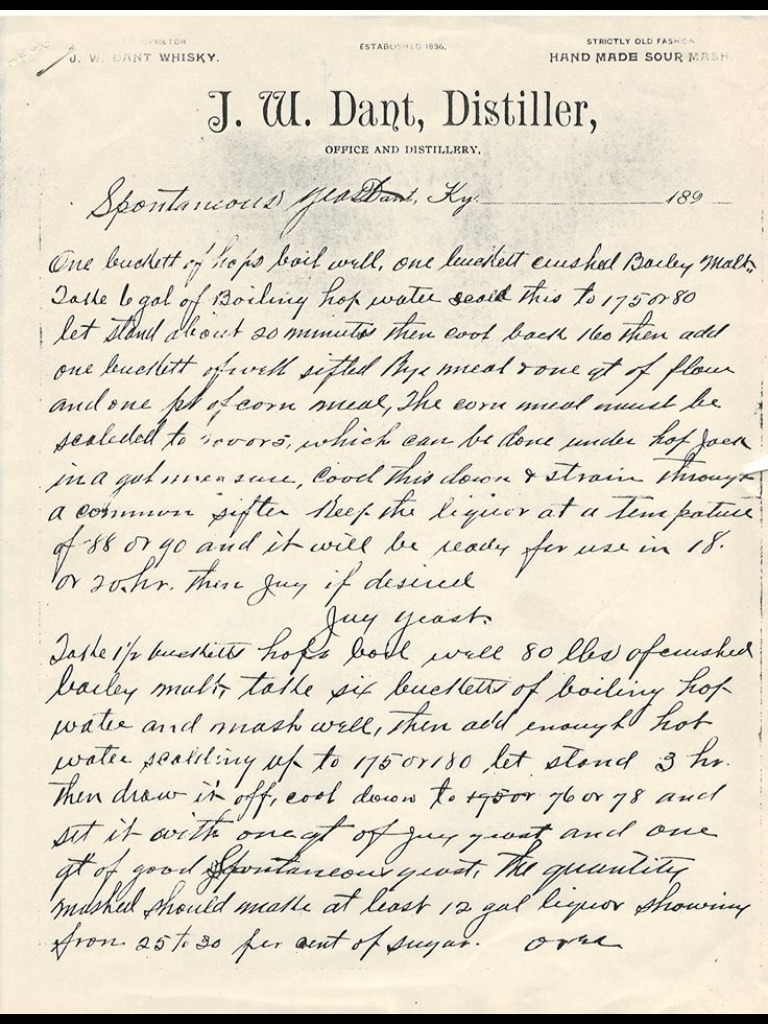 PROPRIETOR
J. W. DANT WHISKY.
ESTABLISHED 1836.
STRICTLY OLD FASHION
HAND MADE SOUR MASH.
J. W. Dant, Distiller,
OFFICE AND DISTILLERY,
Spontaneous yeast Dant, Ky. 189
One buckett of hops boil well, one buckett crushed Barley Malt,
Take 6 gal of Boiling hop water scald this to 175 or 80
let stand about 20 minutes then cool back 160 then add
one buckett of well sifted Rye meal & one qt of flour
and one pt of corn meal, The corn meal must be
scalded to which can be done under hop Jack
in a gal measure, Cool this down & strain through
a common sifter Keep the liquor at a tempature
of 88 or 90 and it will be ready for use in 18.
or 20 hr. then Jug if desired
Jug yeast.
Take 1/2 bucketts hops boil well 80 lbs of crushed
barley malt, take six bucketts of boiling hop
water and mash well, then add enough hot
water scalding up to 175 or 180 let stand 3 hr.
then draw it off, cool down to 76 or 78 and
set it with one qt of Jug yeast and one
qt of good Spontaneous yeast, The quantity
mashed should make at least 12 gal liquor showing
from 25 to 30 per cent of sugar. over